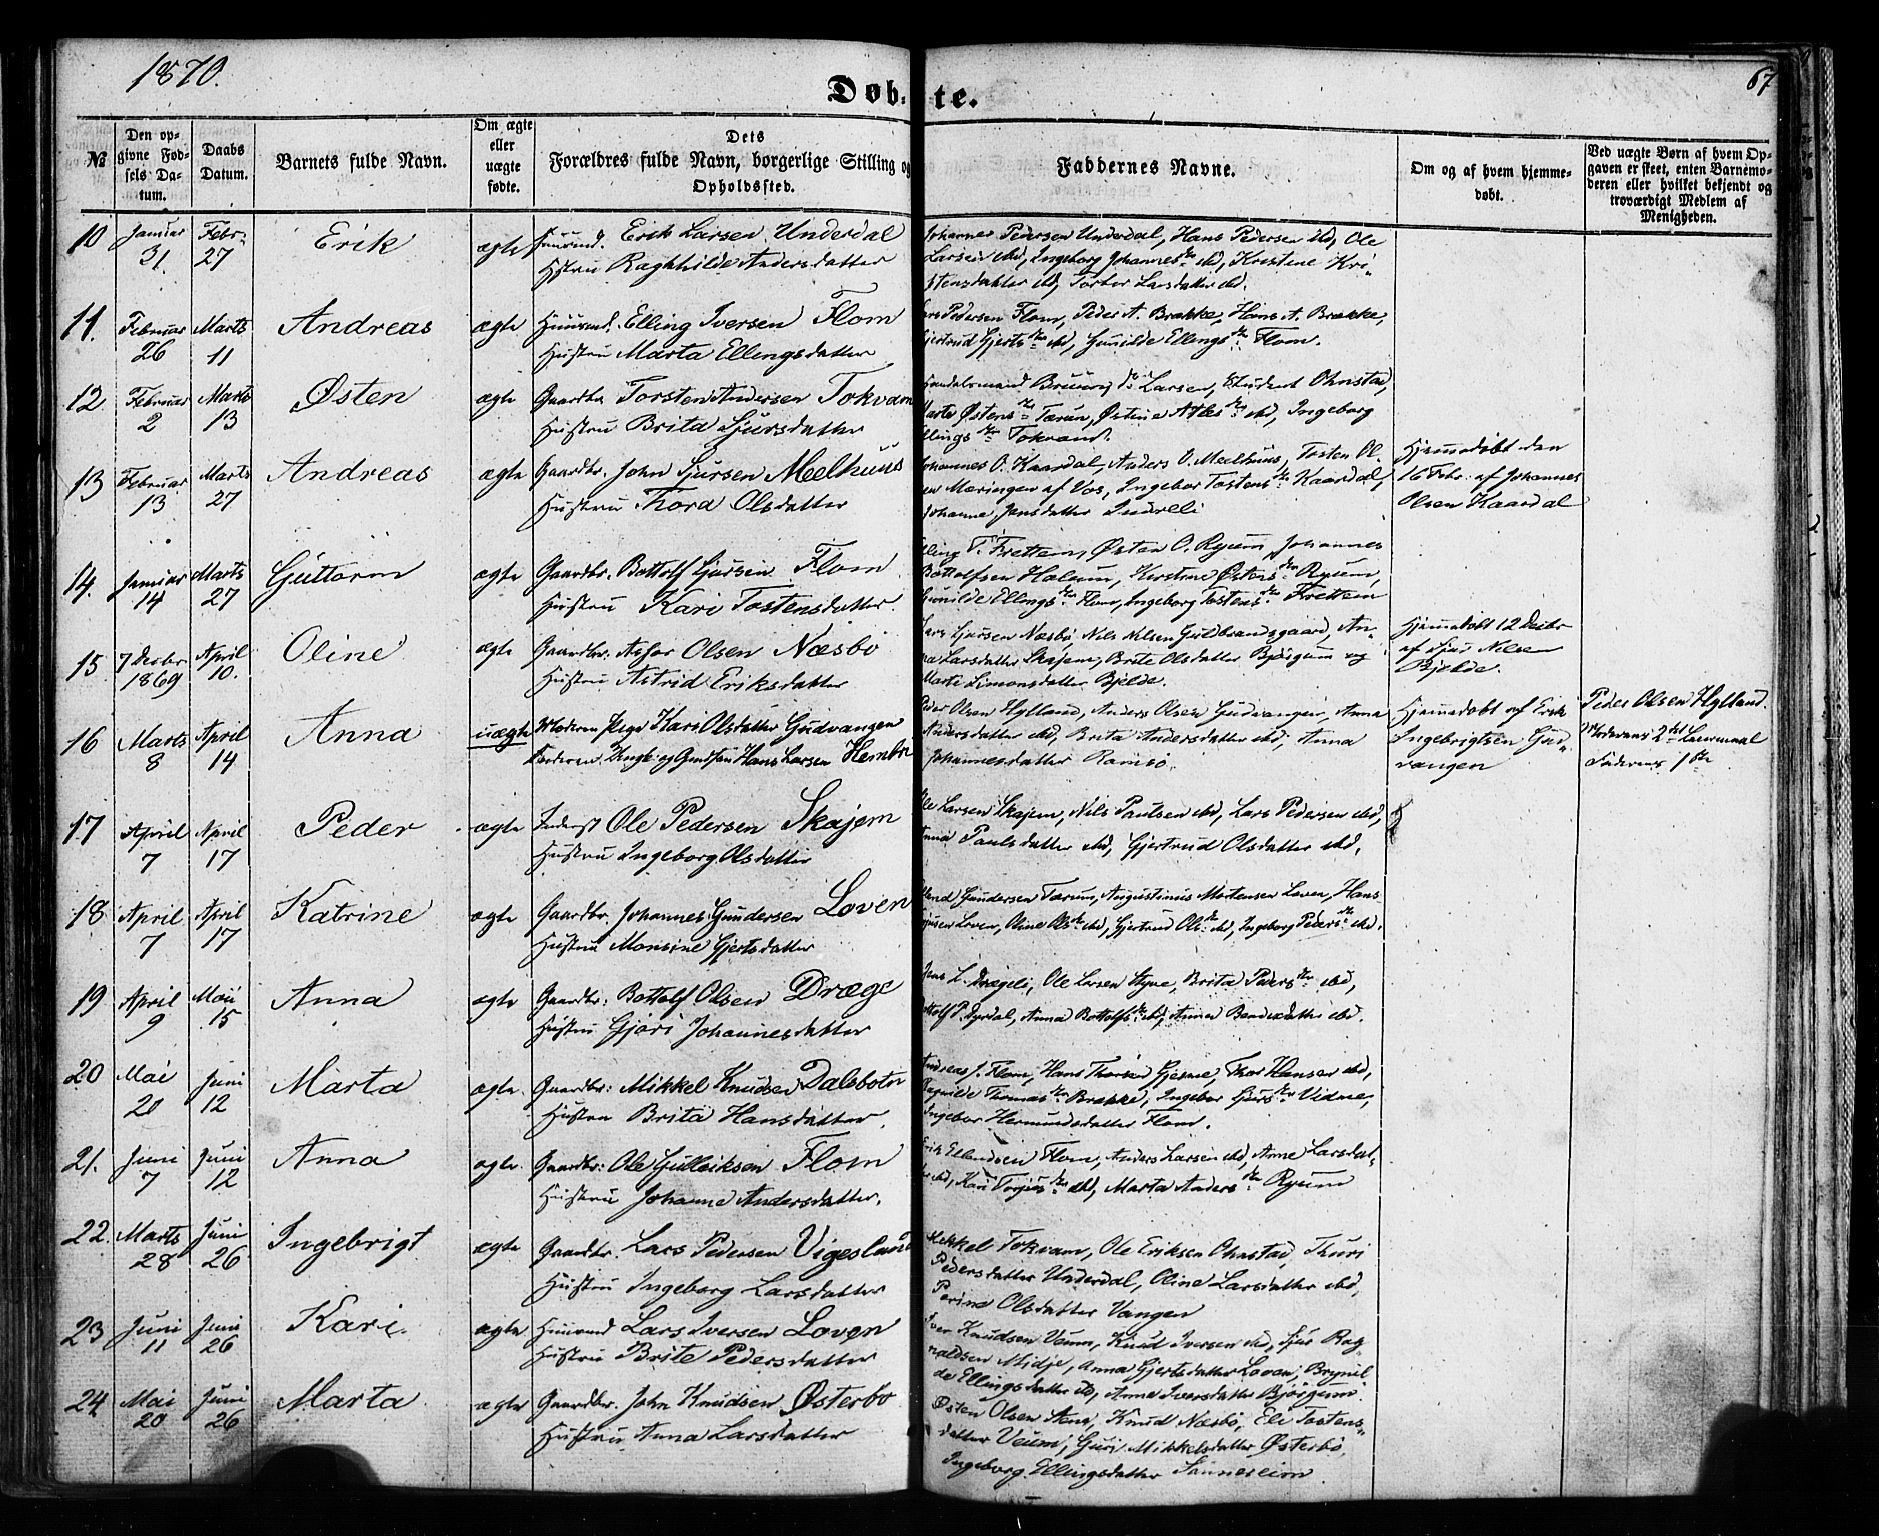 1870.
67
Døbte.
No
Den opgivne Fødsels Datum.
Daabs Datum.
Barnets fulde Navn.
Om ægte eller uægte fødte.
Dets Forældres fulde Navn, borgerlige Stilling og Opholdssted.
Faddernes Navne.
Om og af hvem hjemmedøbt.
Ved uægte Børn af hvem Opgaven er skeet, enten Barnemoderen eller hvilket bekjendt og troværdigt Medlem af Menigheden.
10 Januar 31 Febr. 27 Erik ægte Huusmd. Erik Larsen Underdal
Hustru Raghhilde Andersdatter
Johannes Pedersen Underdal, Hans Pedersen ibd, Ole
Larsen ibd, Ingeborg Johannesdtr ibd, Kristene Kri-
stensdatter ibd, Torbor Larsdatter ibd.
11. Februar 26 Marts 11 Andreas ægte Huusmd. Elling Iversen Flom
Hustru Marta Ellingsdatter
Lars Pedersen Flom, Peder A. Brække, Hans A. Brække,
Gjertrud Gjertsdtr ibd, Gunilde Ellingsdtr Flom.
12 Februar 2 Marts 13 Østen ægte Gaardbr. Torsten Andersen Tokvam
Hustru Brita Sjursdatter
Handelsmand Larsen, Student Ohnstad,
Marta Østensdtr Tærun, Østine Atlesdtr ibd, Ingeborg
Ellingsdtr Tokvand.
13 Februar 13 Marts 27 Andreas ægte Gaardbr. John Sjursen Melhuus
Hustru Thora Olsdatter
Johannes O. Kaardal, Anders O. Meelhuus, Tosten Ol-
sen Mæringen af Vos, Ingebor Tostensdtr Kaardal,
Johanne Jensdatter Indreli
Hjemmedøbt den
16 Febr. af Johannes
Olsen Kaardal
14. Januar 14 Marts 27 Guttorm ægte Gaardbr. Bottolf Sjursen Flom
Hustru Kari Tostensdatter.
Elling T. Frettem, Østen O. Ryum, Johannes
Bottolfsen Haluun, Kirstine Østensdtr Ryum,
Gunilde Ellingsdtr Flom, Ingeborg Tostensdtr Frettem
15. 7 Decbr 1869 April 10. Oline ægte Gaardbr. Olsen Næsbø
Hustru Astrid Eriksdatter
Lars Sjursen Næsbø, Nils Nilsen Guldbrandsgaard, An-
na Larsdatter Skajem, Brite Olsdatter Bjørgum og
Marte Simonsdatter Bjelde.
Hjemmedøbt 12 Decbr
af Sjur Nilsen
Bjelde.
16 Marts 8 April 14 Anna uægte Moderen Pige Kari Olsdatter Gudvangen
Faderen Ungk. og Gmdsøn Hans Larsen Hembre
Peder Olsen Hylland, Anders Olsen Gudvangen, Anna
Andersdatter ibd, Brita Andersdatter ibd, Anna
Johannesdatter Ramsø.
Hjemmedøbt af Erik
Ingebrigtsen Gud-
vangen
Peder Olsen Hylland.
Moderens 2det Leiermaal
Faderens 1ste
17. April 7 April 17 Peder ægte Inderst Ole Pedersen Skajem
Hustru Ingeborg Olsdatter
Ole Larsen Skajem, Nils Paulsen ibd, Lars Pedersen ibd,
Anna Paulsdatter ibd, Gjertrud Olsdatter ibd.
18 April 7 April 17 Katrine ægte Gaardbr. Johannes Gundersen Loven
Hustru Monsine Gjertsdatter
Gundersen Tærum, Augustinus Mortensen Loven, Hans
Loven, Oline Olsdtr ibd, Gjertrud Olsdtr ibd, Ingeborg Pedersdtr ibd.
19 April 9 Mai 15 Anna ægte Gaardbr: Bottolf Olsen Dræge
Hustru Gjøri Johannesdatter
Jens L. Drægeli, Ole Larsen Styve, Brita Pedersdtr ibd,
Bottolf P. Dyrdal, Anna Bottolfsdtr ibd, Anna Bendixdatter ibd.
20 Mai 20 Juni 12 Marta ægte. Gaardbr: Mikkel Knudsen Dalsbotn
Hustru Brita Hansdatter.
Andreas J. Flom, Hans Thorsen Gjerme, Thor Hansen ibd,
Ragnilde Thomasdtr Brække, Ingebor Guldtr Vidme,
Ingebor Hermundsdatter Flom.
21. Juni 7 Juni 12 Anna ægte. Gaardbr: Ole Gulleiksen Flom
Hustru Johanne Andersdatter.
Erik Ellendsen Flom, Anders Larsen ibd, Anne Larsdat-
ter ibd, Kari Torjusdtr ibd, Marta Andersdtr Ryum
22. Marts 28 Juni 26 Ingebrigt ægte Gaardbr. Lars Pedersen Vigesland
Hustru Ingeborg Larsdatter
Mekkel Tokvam, Ole Eriksen Ohnstad, Thuri
Pedersdatter Underdal, Oline Larsdatter ibd,
Perina Olsdatter Vangen
23 Juni 11 Juni 26 Kari. ægte Huusmd Lars Iversen Loven
Hustru Brite Pedersdatter
Iver Knudsen Veum, Knud Iversen ibd, Sjur Rag-
naldsen Midje, Anna Gjertsdatter Loven, Brynil-
de Ellingsdatter ib, Anne Iversdatter Bjørgum.
24 Mai 20 Juni 26 Marta ægte Gaardbr. John Knudsen Østerbø
Hustru Anna Larsdatter
Østen Olsen Stene, Knud Næsbø, Eli Tostens-
datter Veum, Guri Mikkelsdatter Østerbø,
Ingeborg Ellingsdatter Sønnereim.